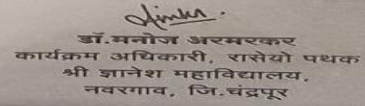 डॉ.मनोज अरमरकर
कार्यक्रम अधिकारी, रासेयो पथक
श्री ज्ञानेश महाविद्यालय,
नवरगाव, जि.चंद्रपूर